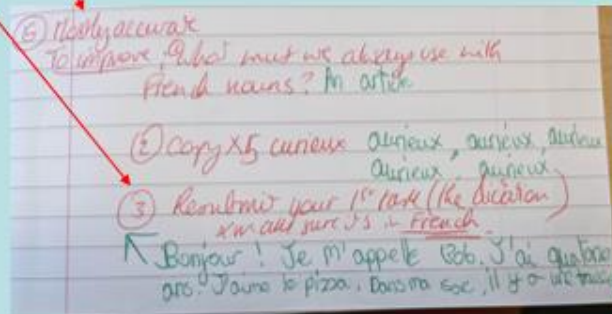 ⑤ Mostly accurate
To improve, What must we always use with
French nouns? An article
② Copy x5 curieux curieux, curieux, curieux
curieux, curieux
③ Resubmit your 1st task (the dictation)
make sure it's in French.
Bonjour! Je m'appelle Bob. J'ai quatorze
ans. J'aime la pizza. Dans ma sac, il y a une